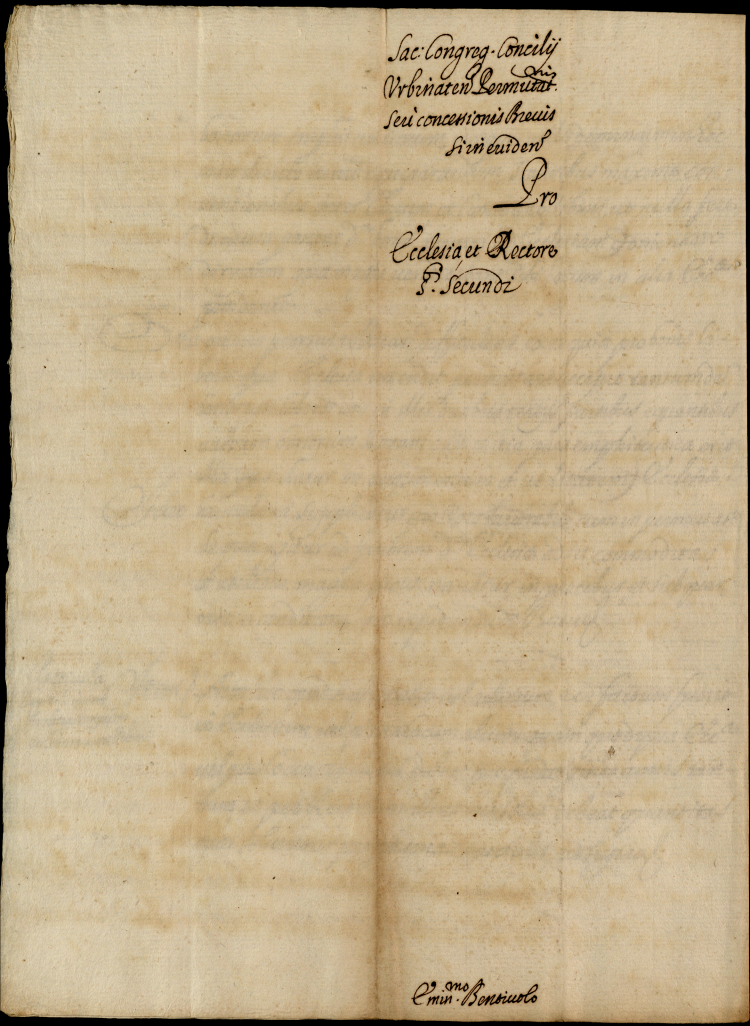 Sac: Congreg. Concilij
Vrbinaten Permutat.nis
Seù concessionis Breuis
Si in euiden
Pro
Ecclesia, et Rectore
Secundi
Emin.mo Bentiuolo